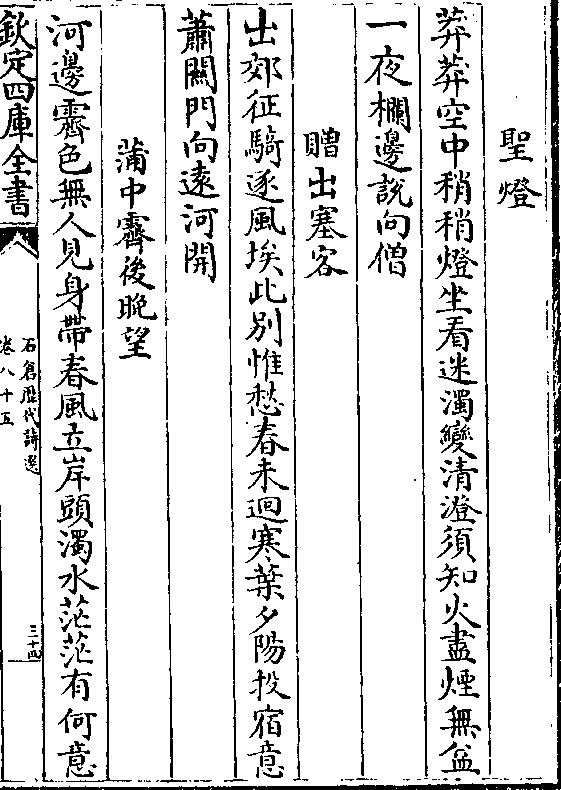 聖燈
莽莽空中稍稍燈坐看迷濁變清澄須知火盡煙無益
一夜欄邊説向僧
贈出塞客
出郊征騎逐風埃此別惟愁春未迴寒葉夕陽投宿意
蕭關門向逺河開
蒲中霽後晚望
河邊霽色無人見身帶春風立岸頭濁水茫茫有何意
欽定四庫全書
石倉歴代詩選
卷八十五
三十四